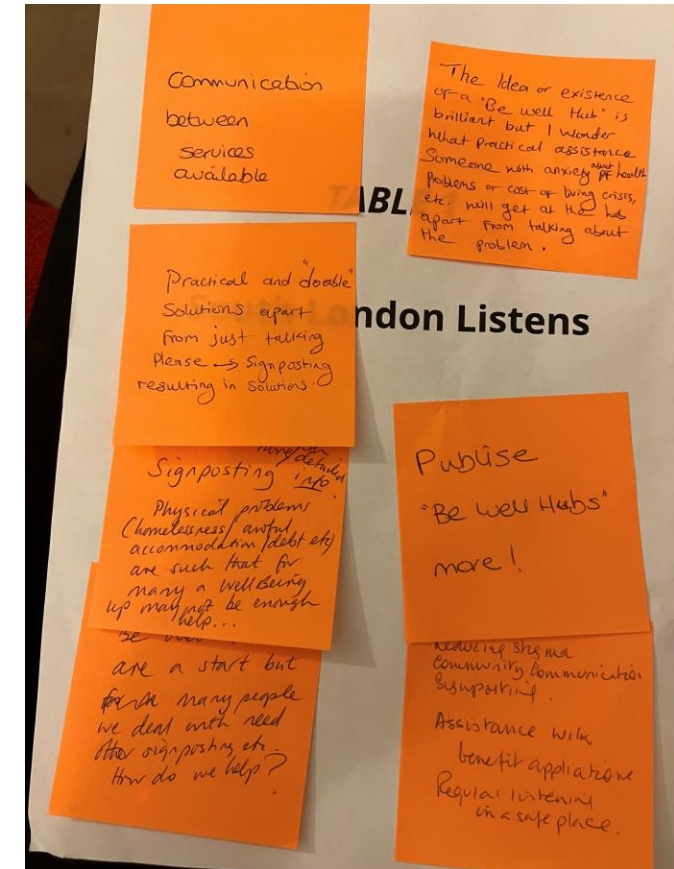 Communication
between
services
available
The Idea or existence
of a "Be well Hub" is
brilliant but I wonder
what practical assistance
Someone with anxiety about health
problems or cost of living crisis,
etc. will get at the hub
apart from talking about
the problem.
TABL
Practical and "doable"
Solutions apart
from just talking
Please → Signposting
resulting in solutions.
ndon Listens
more detailed
Signposting info.
Physical problems
(homelessness/awful
accommodation/debt etc)
are such that for
many a well Being
up may not be enough
help...
Publise
"Be well Hubs"
more!
Be
are a start but
many people
we deal with need
other signposting etc.
How do we help?
Reducing stigma
Community Communication
Signposting.
Assistance with
benefit applications
Regular listening
in a safe place.